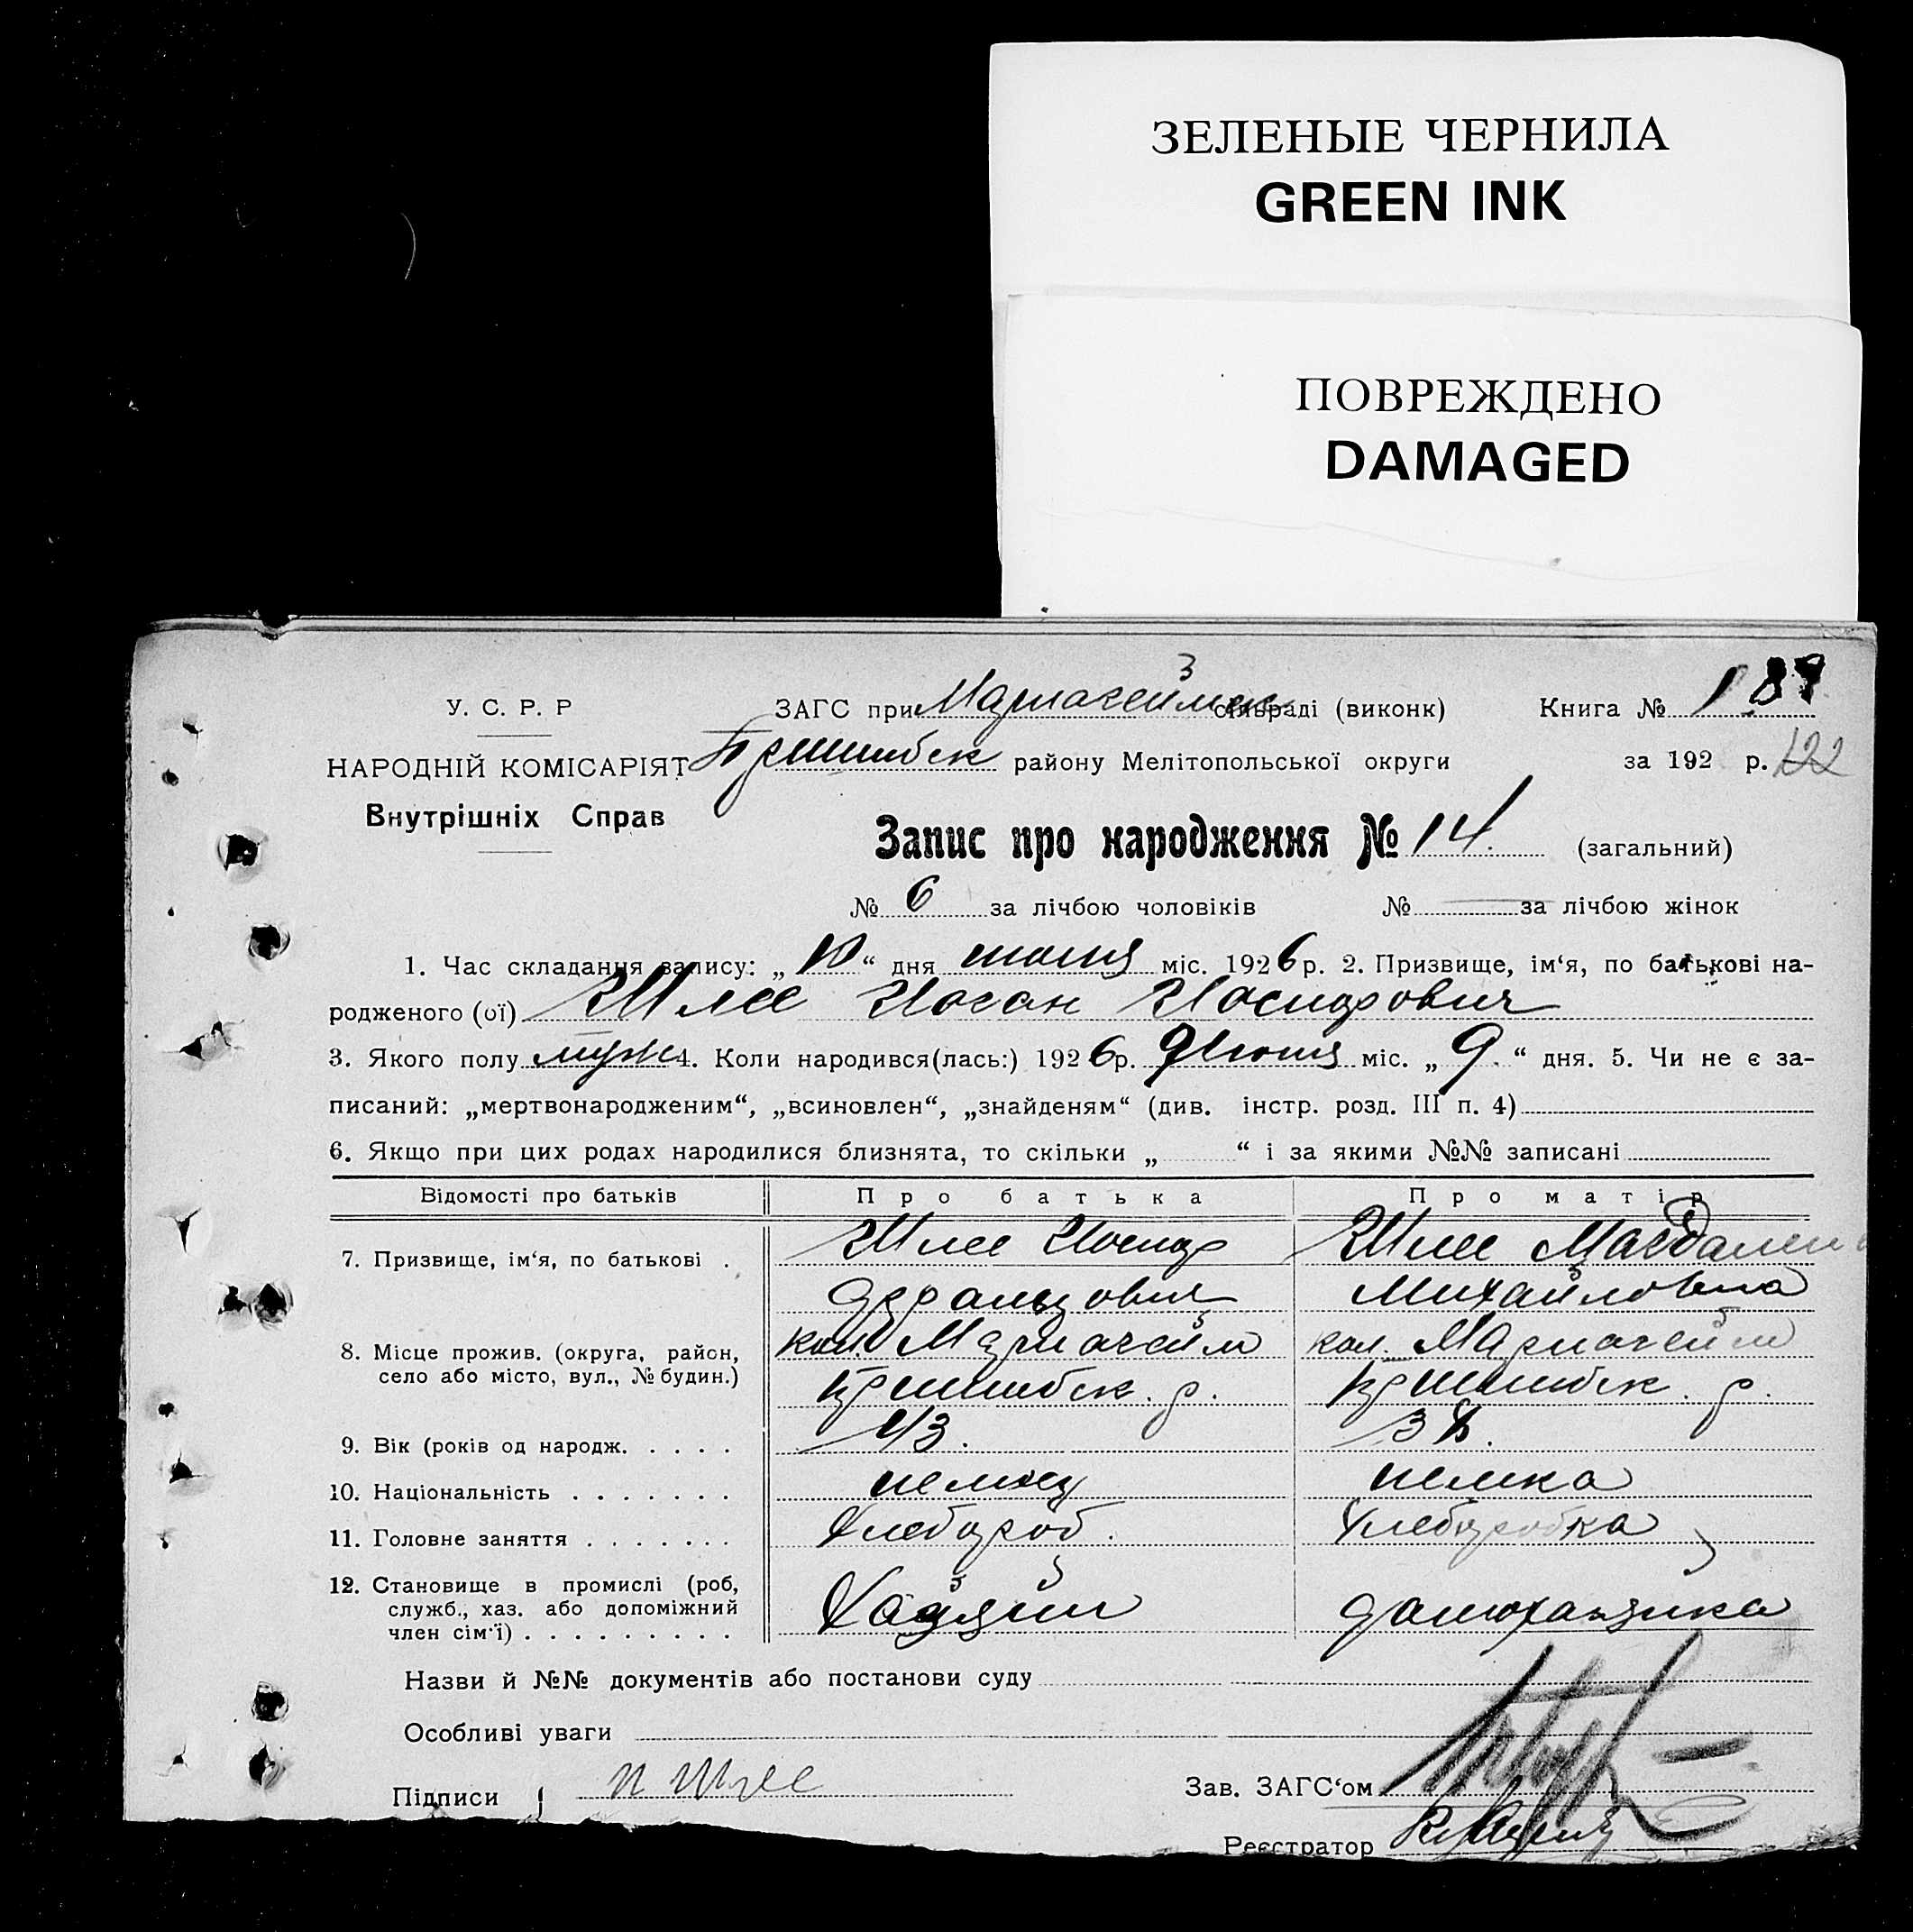 ЗЕЛЕНЫЕ ЧЕРНИЛА
GREEN INK
ПОВРЕЖДЕНО
DAMAGED
3
У. С. Р. Р ЗАГС при Мариагеймск сільраді (виконк) Книга № 1
НАРОДНІЙ КОМІСАРІЯТ Пришибск району Мелітопольської округи за 192 р. 122
Внутрішніх Справ
Запис про народження № 14. (загальний)
№ 6 за лічбою чоловіків № — за лічбою жінок
1. Час складання запису: „10“ дня июня міс. 1926 р. 2. Призвище, ім‘я, по батькові на-
родженого (ої) Шлее Иоган Иосифович
3. Якого полу муж 4. Коли народився(лась:) 1926 р. Июня міс. „9.“ дня. 5. Чи не є за-
писаний: „мертвонародженим“, „всиновлен“, „знайденям“ (див. інстр. розд. III п. 4)
6. Якщо при цих родах народилися близнята, то скільки „ “ і за якими №№ записані
Відомості про батьків Про батька Про матір
7. Призвище, ім‘я, по батькові . Шлее Иосиф Шлее Магдалена
Францович Михайловна
8. Місце прожив. (округа, район, кол. Мариагейм кол. Мариагейм
село або місто, вул., № будин.) Пришибск. р. Пришибск. р.
9. Вік (років од народж. . . . . 43. 38.
10. Національність . . . . . . . немец немка
11. Головне заняття . . . . . . . Хлебороб. Хлеборобка
12. Становище в промислі (роб,
служб., хаз. або допоміжний Хазяин домохазяйка
член сім‘ї) . . . . . . . . .
Назви й №№ документів або постанови суду
Особливі уваги
Підписи { И Шлее Зав. ЗАГС‘ом
Реєстратор